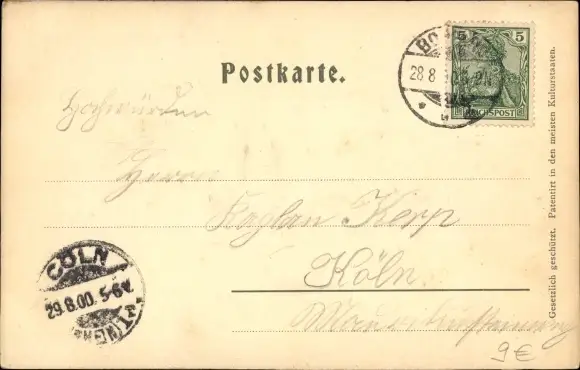 Postkarte.
BO
28 8
5
REICHSPOST
Hochwürden
Herrn
Kaplan Kerp
Köln
CÖLN
29.8.00. 5-6
Gesetzlich geschützt. Patentirt in den meisten Kulturstaaten.
9€